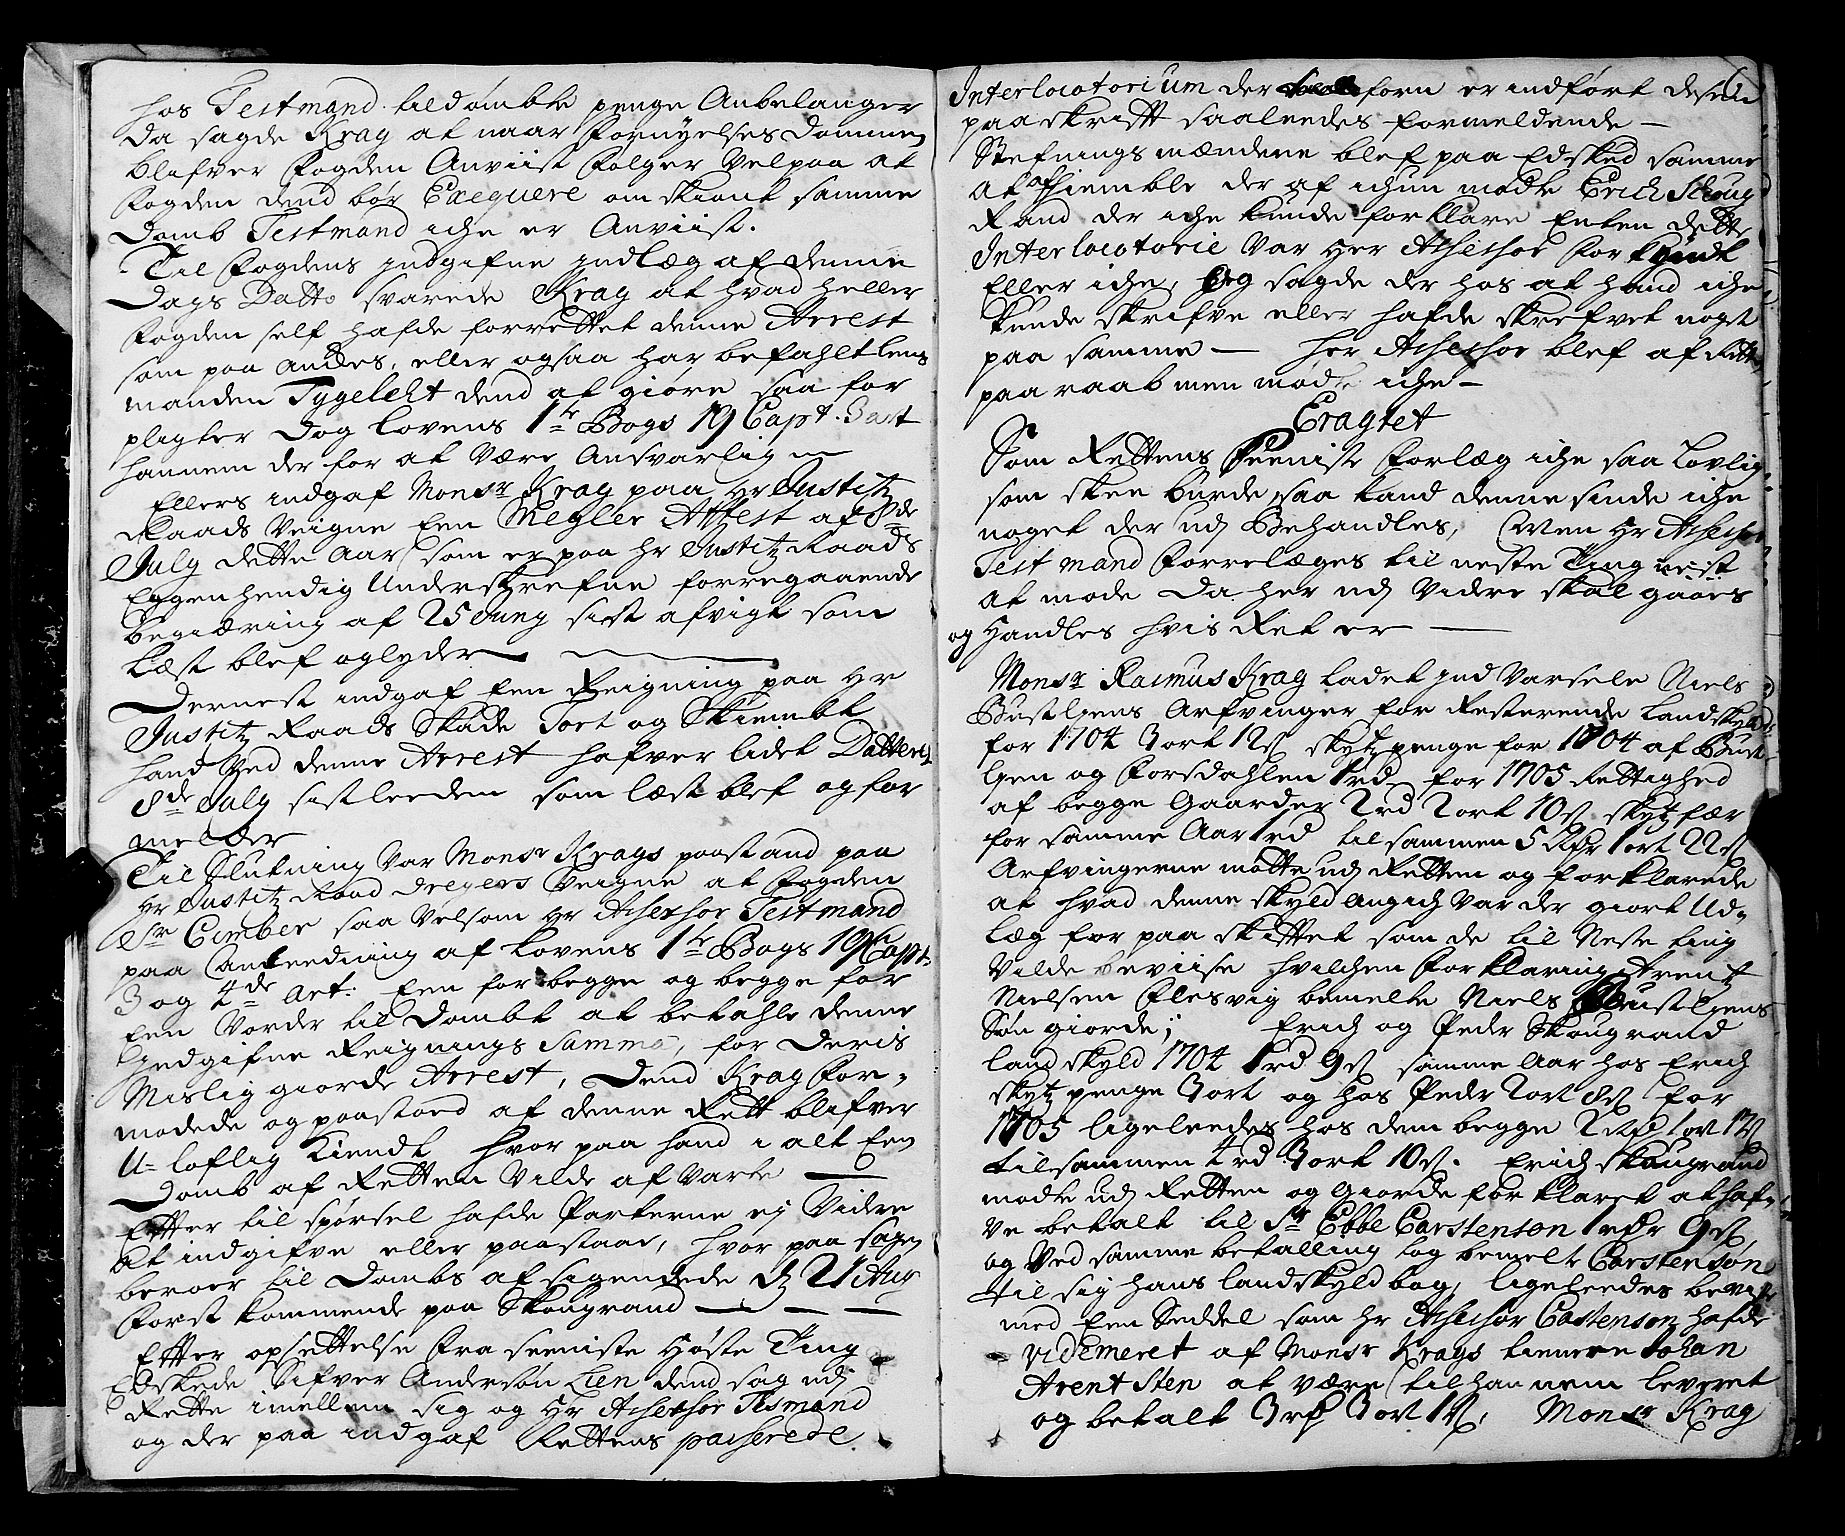 hos Testmand tildømbte penge Anbelanger
da sagde Krag at naar Fornyelses Dommen
blifver Fogden Anviist Følger Velpaa at
Fogden dend bør Exequere omskiønt samme
Domb Testmand iche er Anviist.
Til Fogdens indgifne indlæg af denne
Dags Datto svarede Krag at hvad heller
Fogden self hafde forrettet denne Arrest
som paa Andes, eller ogsaa har befahlt lens
manden Tygeleht dend at giøre saa for
pligter dog lovens 1te Bogs 19 Capt. 3 art
hannem der for at være Ansvarlig
Ellers indgaf Monsr Krag paa Hr Justitz
Raads Veigne Een Megler Attest af 8de
July dette Aar som er paa Hr Justitz Raads
Eggenhendig Underskrefne forregaaende
begiæring af 25 Juny sist afvigt som
Læst blef oglyder
Dernest indgaf Een Reigning paa Hr
Justitz Raads Skade Tort og Skiembt
hand ved denne Arrest hafver lidet Datteret
8de July sistleeden som læst blef og for
melder
Til Slutning var Monsr Krags paastand paa
Hr Justitz Raad Dreyers Veigne at Fogden
Sr Cimber saa velsom Hr Assessor Testmand
paa Anleedning af lovens 1te Bogs 19 Capt.
3 og 4de Art: Een for begge og begge for
Een Vorder til Dømbt at betahle denne
Indgifne Reignings Summa, for Deris
Mislig giorde Arrest, Dend Krag For-
modede og paastoed af denne Rett blifver
U-loflig Kiendt hvor paa hand i alt Een
Domb af Retten Vilde af Varte
Efter til spørsel hafde Parterne ej Videre
At indgifve eller paastaae, hvor paa sagen
beroer til Dombs afsigende d 21 Aug
først kommende paa Skougrand
Efter opsettelse fra seeniste Høste Ting
Eskede Sifver Andersøn Lien dend sag udj
Rette imellem sig og Hr Assessor Tesmand
og der paa indgaf Rettens passerede
Interlocotorium der forn er indført desen
paaskrift saaleedes formeldende
Stefnings mændene blef paa Edsked samme
at afhiemble der af ichun mødte Erich Schoug
Rand der iche kunde forklare Enten dette
Interlocotorie var Her Assessor Forkyndt
Eller iche, Og sagde der hos at hand iche
kunde skrifve eller hafde skrefvet nogt
paa samme — Her Assessor blef af Rette
paaraab men mødte iche
Eragtet
Som Rettens Seeniste Forlæg iche saa Lovlig
som skee burde, saa kand denne sinde iche
noget der udj Behandles, Men Hr Assessor
Testmand Forrelæges til neste Ting nest
at møde da her udj Videre skal gaaes
og Handles hvis Ret er
Monsr Rasmus Krag ladet ind Varsele Niels
Bustgens Arfvinger for Resterende Landskyld
for 1704 3 ort 12 s skytz penge for 1704 af Bust
gen og Forsdahlen 1 rd for 1705 Rettighed
af begge Gaarder 2 rd 2 ort 10 s skytzfær
for samme Aar 1 rd tilsammen 5 Rdr 1 ort 22 s
Arfvingerne møtte udj Retten og forklarede
at hvad denne skyld angich var der giort Ud-
læg for paa skiftet som de til Neste ting
Vilde beviise hvilchen Forklaring Arent
Nielsen Flesvig bemelte Niels Bustgens
Søn giorde; Erich og Peder Skougrand
landskyld 1704 1 rd 9 s samme Aar hos Erich
skytz penge 3 ort og hos Peder 2 ort 8 s for
1705 ligeleedes hos dem begge 2 rd 1 ort 17 s
tilsammen 4 rd 3 ort 10 s. Erich Skougrand
mødte udj Retten og Giorde forklaret at haf-
ve betalt til Sr Ebbe Carstenson 1 rdr 9 s,
og ved samme betalling tog bemelte Carstensøn
til sig hans landskyld bog, ligeleedes beviste
med Een Seddel som hr Assessor Castenson hafde
videmeret af Monsr Krags tiennere Johan
Arent Sten at være til hannem leveret
og betalt 3 rd 3 ort 1 s, Monsr Krag